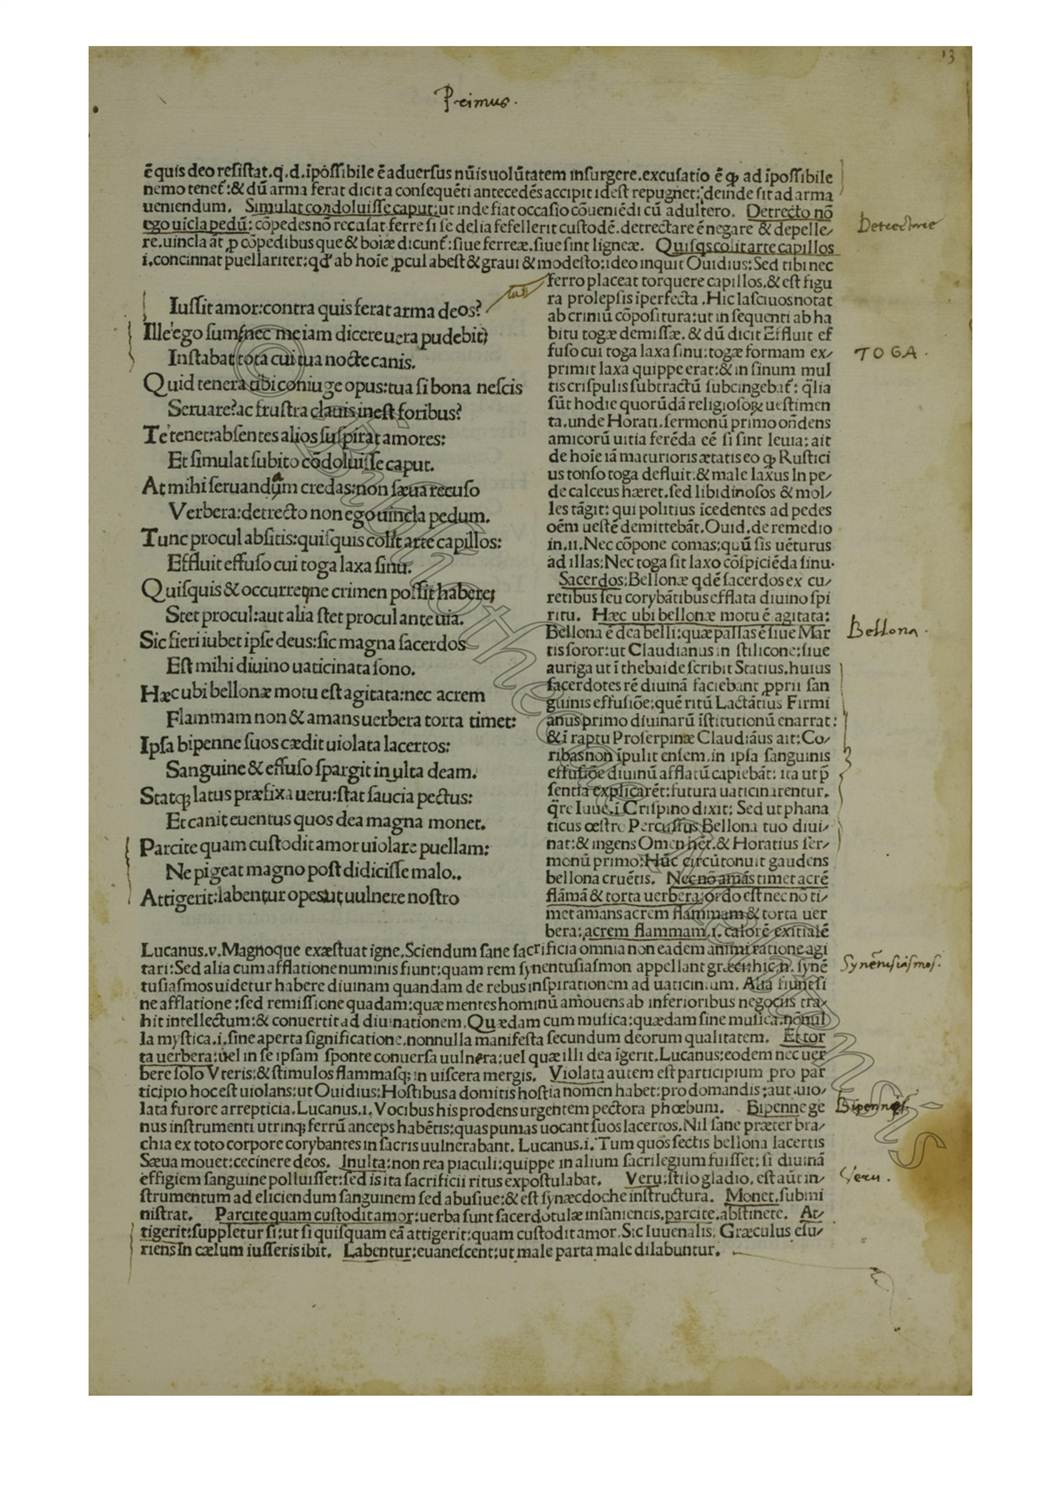 13
Primus.
ē quis deo resistat.q.d.īpossibile ē aduersus nūis uolūtatem insurgere.excusatio ē ꝙ ad īpossibile
nemo tenet:& dū arma ferat dicit a consequēti antecedēs accipit idest repugnet:deinde sit ad arma
ueniendum. Simulat condoluisse caput:ut inde fiat occasio cōueniēdi cū adultero. Detrecto nō
ego uicla pedū:cōpedes nō recusat ferre si se delia fefellerit custodē.detrectare ē negare & depelle/
re.uincla āt ꝓ cōpedibus que & boiæ dicunt:siue ferreæ.siue sint ligneæ. Quisqs colit arte capillos
i.concinnat puellariter:qd' ab hoie ꝓcul abest & graui & modesto:ideo inquit Ouidius:Sed tibi nec
Iussit amor:contra quis ferat arma deos?
Ille ego sum:nec me iam dicere uera pudebit:
Instabat tota cui tua nocte canis.
Quid tenera tibi coniuge opus:tua si bona nescis
Seruare?ac frustra clauis inest foribus?
Te tenet:absentes alios suspirat amores:
Et simulat subito cōdoluisse caput.
At mihi seruandam credas:non sæua recuso
Verbera:detrecto non ego uincla pedum.
Tunc procul absitis:quisquis colit arte capillos:
Effluit effuso cui toga laxa sinu.
Quisquis & occurret:ne crimen possit habere:
Stet procul:aut alia stet procul ante uia.
Sic fieri iubet ipse deus:sic magna sacerdos
Est mihi diuino uaticinata sono.
Hæc ubi bellonæ motu est agitata:nec acrem
Flammam non & amans uerbera torta timet:
Ipsa bipenne suos cædit uiolata lacertos:
Sanguine & effuso spargit inulta deam.
Statqʒ latus præfixa ueru:stat saucia pectus:
Et canit euentus quos dea magna monet.
Parcite quam custodit amor uiolare puellam:
Ne pigeat magno post didicisse malo.
Attigerit:labentur opes:ut uulnere nostro
ferro placeat torquere capillos.& est figu
ra prolepsis īperfecta.Hic lasciuos notat
ab criniū cōpositura:ut in sequenti ab ha
bitu togæ demissæ. & dū dicit Effluit ef
fuso cui toga laxa sinu:togæ formam ex/
primit laxa quippe erat:& in sinum mul
tis crispulis subtractū subcingebat: q̄lia
sūt hodie quorūdā religiosoꝝ uestimen
ta.unde Horati.sermonū primo oñdens
amicorū uitia ferēda eē si sint leuia: ait
de hoie iā maturioris ætatis eo ꝙ Rustici
us tonso toga defluit:& male laxus In pe/
de calceus hæret.sed libidinosos & mol/
les tāgit: qui politius icedentes ad pedes
oēm uestē demittebāt.Ouid.de remedio
in.ii.Nec cōpone comas:quū sis uēturus
ad illas:Nec toga sit laxo cōspiciēda sinu.
Sacerdos:Bellonæ qdē sacerdos ex cu/
retibus seu corybātibus efflata diuino spi
ritu. Hæc ubi bellonæ motu ē agitata:
Bellona ē dea belli:quæ pallas ē siue Mar
tis soror:ut Claudianus in stilicone:siue
auriga ut ī thebaide scribit Statius.huius
sacerdotes rē diuinā faciebant ꝓprii san
guinis effusiōe:quē ritū Lactātius Firmi
anus primo diuinarū īstitutionū enarrat:
& ī raptu Proserpinæ Claudiāus ait:Co/
ribas non īpulit ensem.in ipsa sanguinis
effusiōe diuinū afflatū capiebāt: ita ut p̄
sentia explicarēt:futura uaticinarentur.
q̄re Iuue.ī Crispino dixit: Sed ut phana
ticus œstro Percussus Bellona tuo diui/
nat:& ingens Omen hēt.& Horatius ser/
monū primo:Hūc circūtonuit gaudens
bellona cruētis. Nec nō amās timet acrē
flāmā & torta uerbera:ordo est nec nō ti/
met amans acrem flammam & torta uer
bera:acrem flammam.i.calorē exitialē
Lucanus.v.Magnoque exæstuat igne.Sciendum sane sacrificia omnia non eadem animi ratione agi
tari:Sed alia cum afflatione numinis fiunt:quam rem synentusiasmon appellant græci:hic.n. synē
tusiasmos uidetur habere diuinam quandam de rebus inspirationem ad uaticinium. Alia fiunt si
ne afflatione :sed remissione quadam:quæ mentes hominū amouens ab inferioribus negociis tra/
hit intellectum:& conuertit ad diuinationem.Quædam cum musica:quædam sine musica.nonul
la mystica.i.sine aperta significatione.nonnulla manifesta secundum deorum qualitatem. Et tor
ta uerbera:uel in se ipsam sponte conuersa uulnera:uel quæ illi dea īgerit.Lucanus:eodem nec uer
bere solo Vteris:& stimulos flammasqʒ in uiscera mergis. Violata autem est participium pro par
ticipio hoc est uiolans:ut Ouidius:Hostibus a domitis hostia nomen habet:pro domandis:aut uio/
lata furore arrepticia.Lucanus.i.Vocibus his prodens urgentem pectora phœbum. Bipenne ge
nus instrumenti utrinqʒ ferrū anceps habētis:quas pumas uocant suos lacertos.Nil sane præter bra/
chia ex toto corpore corybantes in sacris uulnerabant. Lucanus.i.Tum quos sectis bellona lacertis
Sæua mouet:cecinere deos. Inulta:non rea piaculi:quippe in alium sacrilegium fuisset: si diuinā
effigiem sanguine polluisset:sed is ita sacrificii ritus expostulabat. Veru:stilo gladio. est aūt in/
strumentum ad eliciendum sanguinem sed abusiue:& est synæcdoche instructura. Monet.submi
nistrat. Parcite quam custodit amor:uerba sunt sacerdotulæ insanientis.parcite.abstinete. At/
tigerit:suppletur si:ut si quisquam eā attigerit:quam custodit amor.Sic Iuuenalis. Græculus esu/
riens In cælum iusseris ibit. Labentur:euanescent:ut male parta male dilabuntur.
Detrectare
TOGA.
Bellona.
Synentusiasmos.
Bipennes.
Veru.